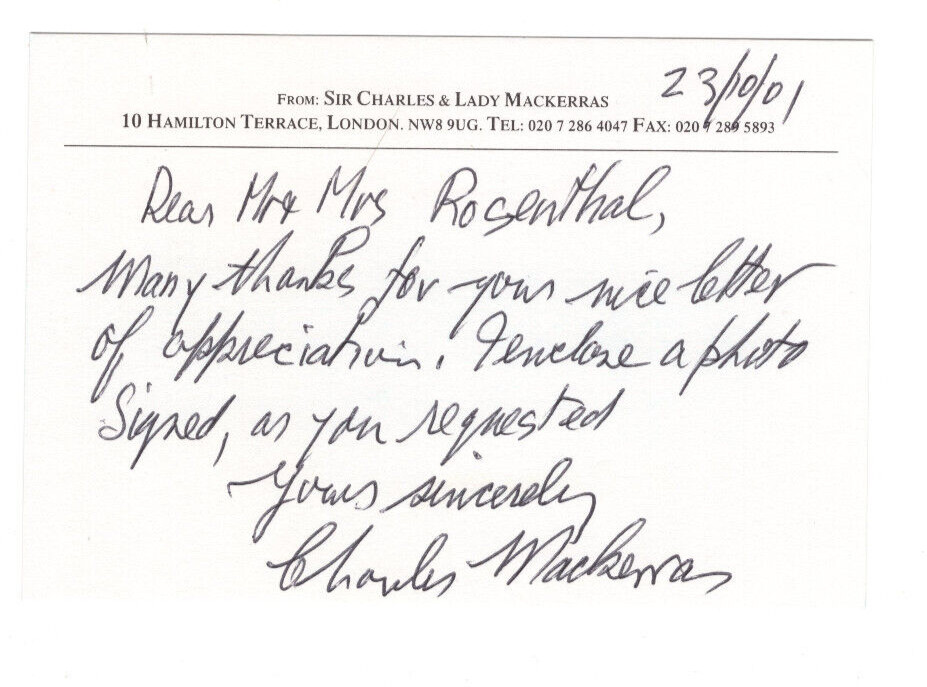 23/10/01
FROM: SIR CHARLES & LADY MACKERRAS
10 HAMILTON TERRACE, LONDON. NW8 9UG. TEL: 020 7 286 4047 FAX: 020 7 289 5893
Dear Mr & Mrs Rosenthal,
Many thanks for your nice letter
of appreciation. I enclose a photo
signed, as you requested
Yours sincerely
Charles Mackerras